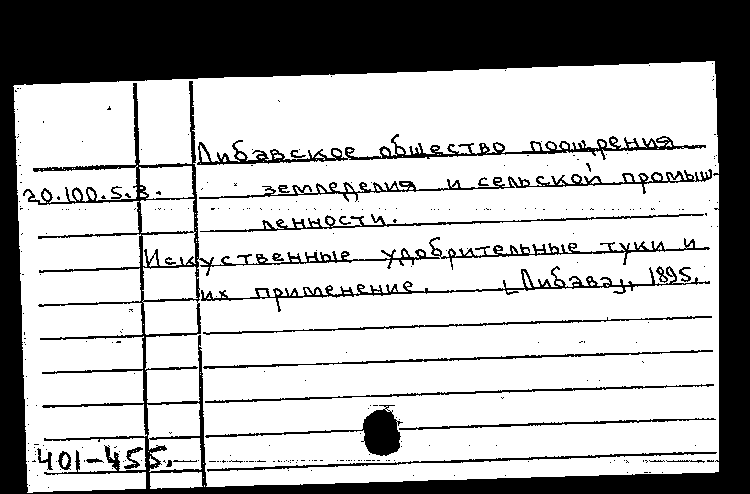 Либавское общество поощрения
20.100.5.3. земледелия и сельской промыш-
ленности.
Искуственные удобрительные туки и
их применение. [Либава], 1895.
401-455.